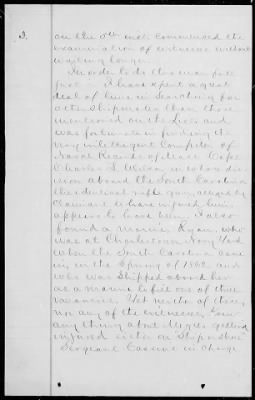 3.
on the 5th inst. commenced the
examination of witnesses without
waiting longer.
In order to do this man full
justice I have spent a great
deal of time in searching for
other shipmates than those
mentioned on the list and
was fortunate in finding the
very intelligent Compiler of
Naval Records of Mass. Capt.
Charles L. Wilson
aboard the South Carolina
the identical rifle gun, alleged by
claimant to have injured him
appears to have been. I also
found a marine, Ryan, who
was at Charlestown Navy Yard
when the South Carolina came
in in the Spring of 1862 and
who was shipped aboard her
as a marine to fill one of three
vacancies. Yet neither of these
nor any of the witnesses knew
any thing about getting
injured either on "Ship or shore"
Sergeant in charge